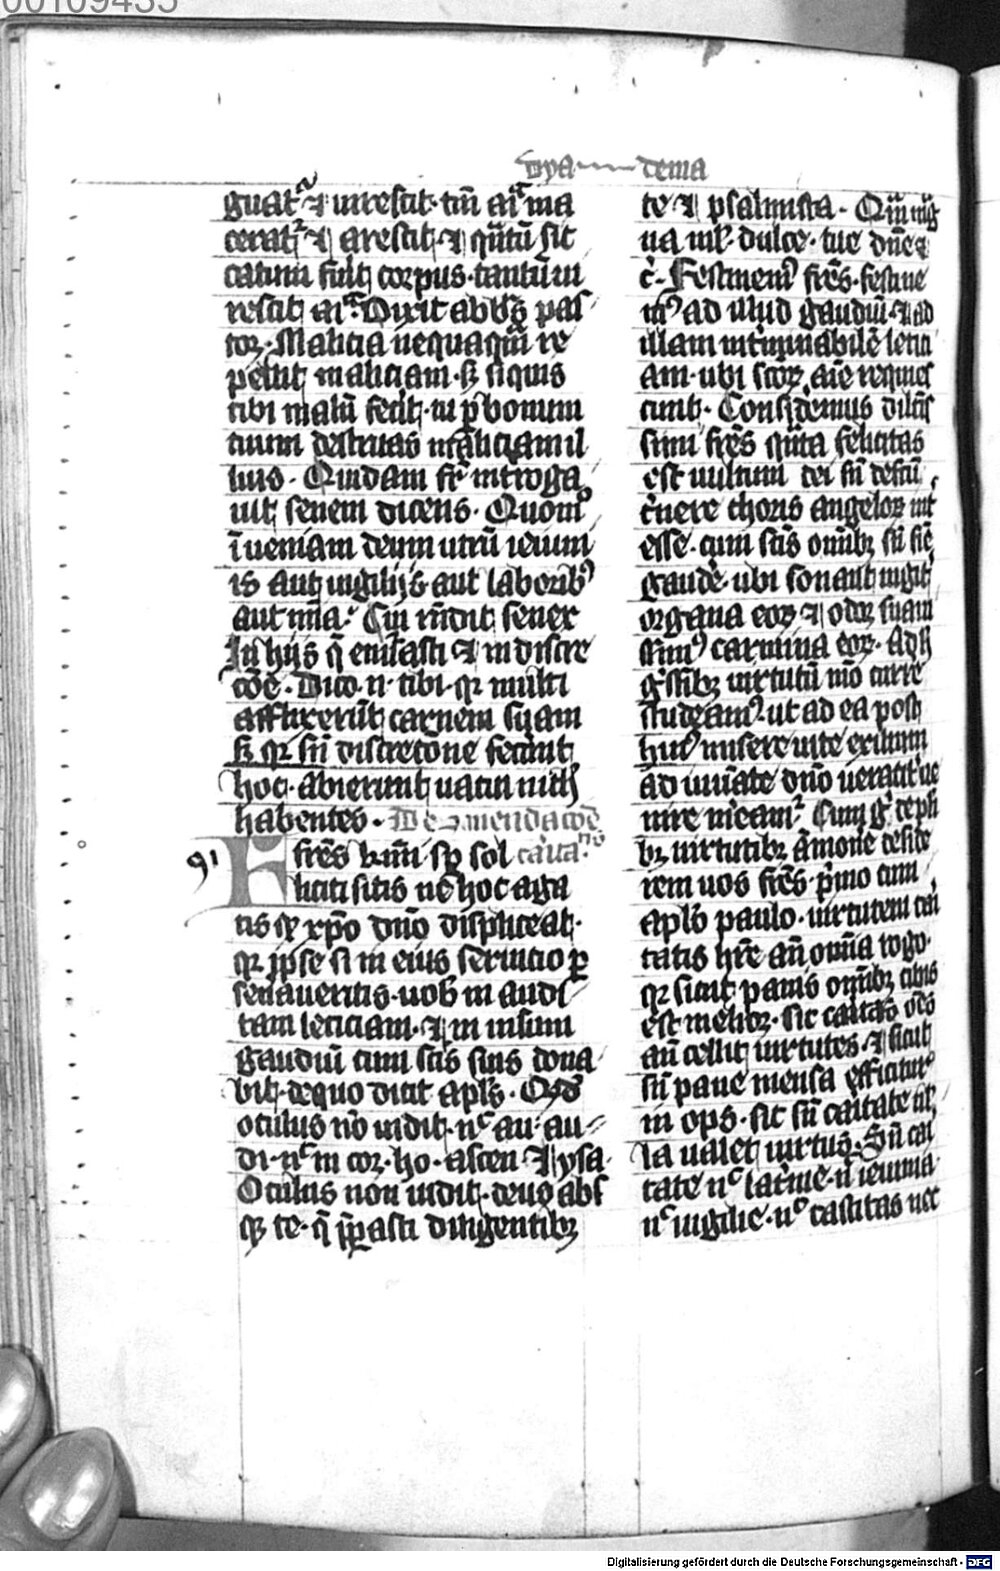 00109435
dya dema
guatᷣ ⁊ uirescit· tm̄ aīa ma
ceratᷣ ⁊ arescit· ⁊ qn̄tū sic
catum fuīt corpus· tantū ui
rescit aīa· Dixit abb̄s pas
tor· Malicia nequaqm̄ re
pellit maliciam· sꝫ siquis
tibi malū fecīt· tu ꝑ bonum
tuum destruas maliciam il
lius· Quidam fr̄ int̄roga
uit senem dicens· Quomō
īueniam deum utrū ieiuni
is aut uigilijs aut laboribꝰ
aut mīa· Cui rn̄dit senex
In hijs q̄ em̄iasti ⁊ in discre
cōe· Dico·n· tibi· qꝛ multi
afflixerūt carnem suam
sꝫ qꝛ sn̄ discretōne fecerūt
hoc· abierunt uacui nich̄
habentes· De ɔmendacōe
91 Fr̄es k̄mi sꝑ sol caritatis
liciti sitis ne hoc aga
tis qd̄ xp̄o dn̄o displiceat·
qꝛ ip̄e si in eius seruicio ꝑ
seuaueritis· uob̄ in audi
tam leticiam· ⁊ in insum
gaudiū cum scīs suis dona
bit· de quo dicit apl̄s· Qd̄
oculus nō uidit· n̄c au· au
di· n̄c in cor· ho· ascen· ⁊ ysa·
Oculus non uidit· deus abs
qꝫ te· q̄ p̄parasti diligentibꝫ
te ⁊ psalmista· Qm̄ mag
na ml̄· dulce· tue dn̄e ⁊
c̄· Festinemꝰ fr̄es· festine
mꝰ ad illud gaudiū· ⁊ ad
illam int̄minabilē leticī
am· ubi scōꝝ aīe requies
cunt· Consid̄emus dilc̄is
simi fr̄es qn̄ta felicitas
est uultum dei sn̄ defcū
c̄nere choris angeloꝝ int̄
esse· cum scīs omībꝫ sn̄ fīe
gaude· ubi sonant iugit̄
organa eoꝝ ⁊ odoꝝ suaui
ssimꝰ carmina eoꝝ· Ad h̄
gressibꝫ uirtutū mō curre
studeamꝰ· ut ad ea post
huiꝰ misere uite exitum
ad inuitate dn̄o ueracit̄ ue
nire m̄eamᷣ Cum g̊ de pl̄i
bꝫ uirtutibꝫ am̄onē deside
rem uos fr̄es· p̄mo cum
apl̄o paulo· uirtutem cari
tatis hr̄e an̄ omīa rogo·
qꝛ sicut panis omībꝫ cibis
est melior· sic caritas om̄s
an̄ cellit uirtutes· ⁊ sicut
sn̄ pane mensa efficitur
in ops· sic sn̄ caritate nl̄
la ualet uirtus· Sn̄ cari
tate n̄c lac̄me· n̄ ieiunia·
n̄c uigilie· n̄c castitas nec
Digitalisierung gefördert durch die Deutsche Forschungsgemeinschaft - DFG